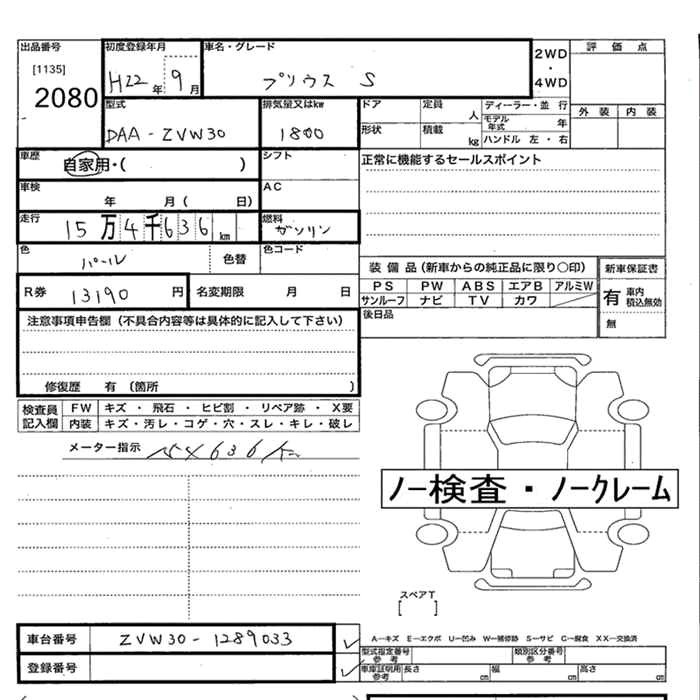 出品番号 初度登録年月 車名・グレード 2WD ・ 4WD 評価点
[1135]
2080
H22年 9月 プリウス S
外装 内装
型式 排気量又はkw ドア 定員 人 ディーラー・並 行
DAA-ZVW30 1800 形状 積載 kg モデル年式 年
ハンドル 左・右
車歴 自家用・( ) シフト
正常に機能するセールスポイント
車検 年 月( 日) AC
走行 15万4千636km 燃料 ガソリン
色 パール 色替 色コード
装備品(新車からの純正品に限り〇印) 新車保証書
PS PW ABS エアB アルミW
サンルーフ ナビ TV カワ
有 車内積込無効
無
R券 13190円 名変期限 月 日
後日品
注意事項申告欄(不具合内容等は具体的に記入して下さい)
修復歴 有(箇所 )
検査員記入欄 FW キズ・飛石・ヒビ割・リペア跡・X要
内装 キズ・汚レ・コゲ・穴・スレ・キレ・破レ
メーター指示 154636km
ノー検査・ノークレーム
スペアT
[ ]
車台番号 ZVW30-1289033
登録番号
A-キズ E-エクボ U-凹み W-補修跡 S-サビ C-腐食 XX-交換済
型式指定番号 参考 類別区分番号 参考
車庫証明用 参考 長さ cm 幅 cm 高さ cm